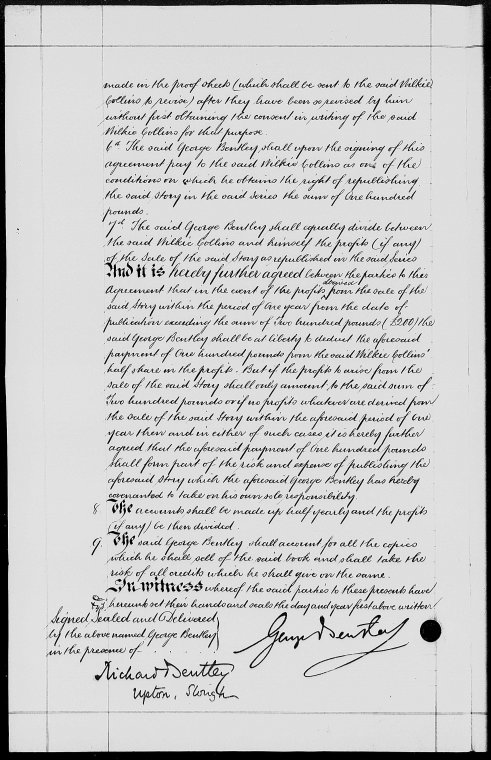 made in the proof sheets (which shall be sent to the said Wilkie
Collins to revise) after they have been so revised by him
without first obtaining the consent in writing of the said
Wilkie Collins for that purpose.
6th The said George Bentley shall upon the signing of this
agreement pay to the said Wilkie Collins as one of the
conditions on which he obtains the right of republishing
the said Story in the said Series the sum of One hundred
pounds.
7th The said George Bentley shall equally divide between
the said Wilkie Collins and himself the profits (if any)
of the Sale of the said Story as republished in the said Series
And it is hereby further agreed between the parties to this
Agreement that in the event of the profits derived from the sale of the
said Story within the period of One year from the date of
publication exceeding the sum of Two hundred pounds (£200) the
said George Bentley shall be at liberty to deduct the aforesaid
payment of One hundred pounds from the said Wilkie Collins'
half share in the profits. But if the profits to arise from the
sale of the said Story shall only amount to the said sum of
Two hundred pounds or if no profits whatever are derived from
the sale of the said Story within the aforesaid period of One
year then and in either of such cases it is hereby further
agreed that the aforesaid payment of One hundred pounds
shall form part of the risk and expense of publishing the
aforesaid Story which the aforesaid George Bentley has hereby
covenanted to take on his own sole responsibility.
8 The accounts shall be made up half yearly and the profits
(if any) be then divided.
9. The said George Bentley shall account for all the copies
which he shall sell of the said book and shall take the
risk of all credits which he shall give on the same.
In witness whereof the said parties to these presents have
hereunto set their hands and seals the day and year first above written
Signed Sealed and Delivered
by the above named George Bentley
in the presence of
George Bentley
Richard Bentley
Upton, Slough